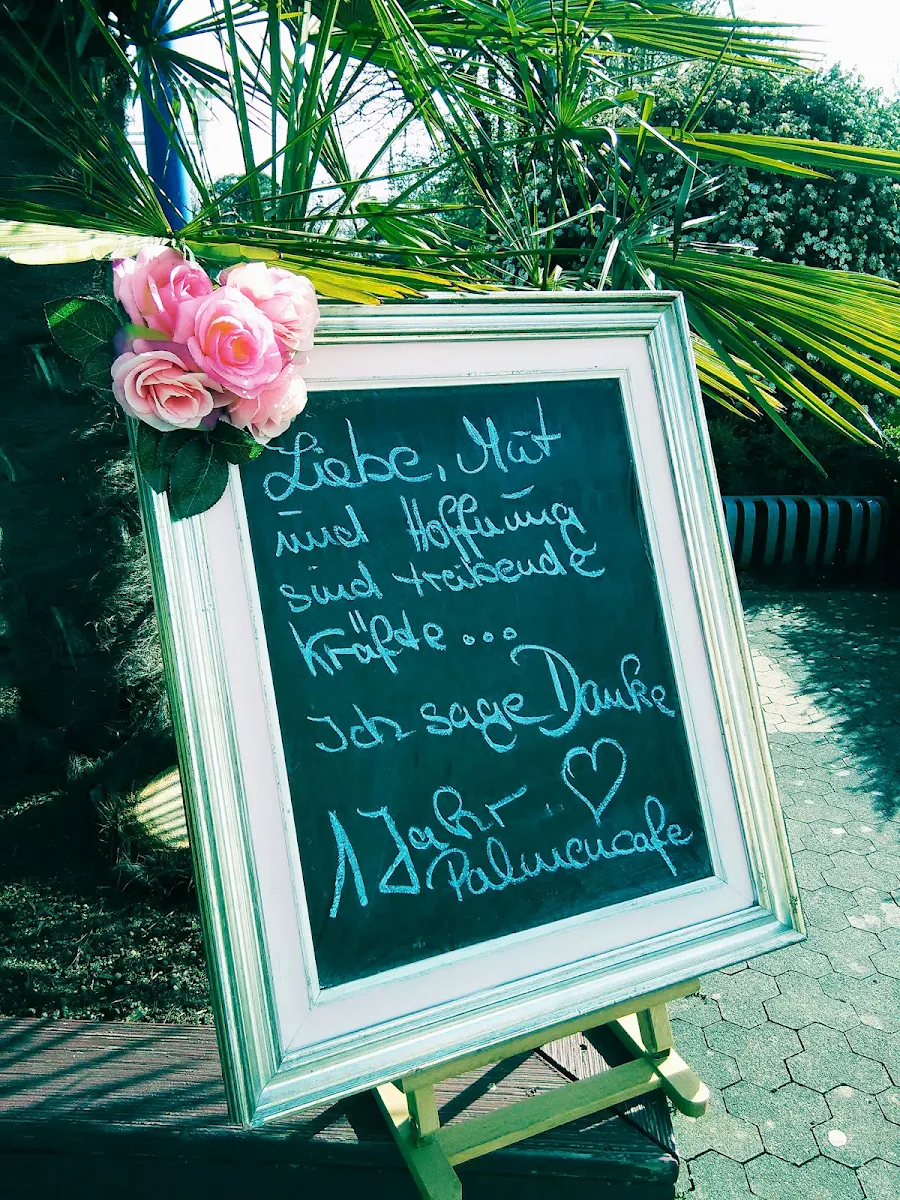 Liebe, Mut
und Hoffnung
sind treibende
Kräfte...
Ich sage Danke
1 Jahr
Palmencafe